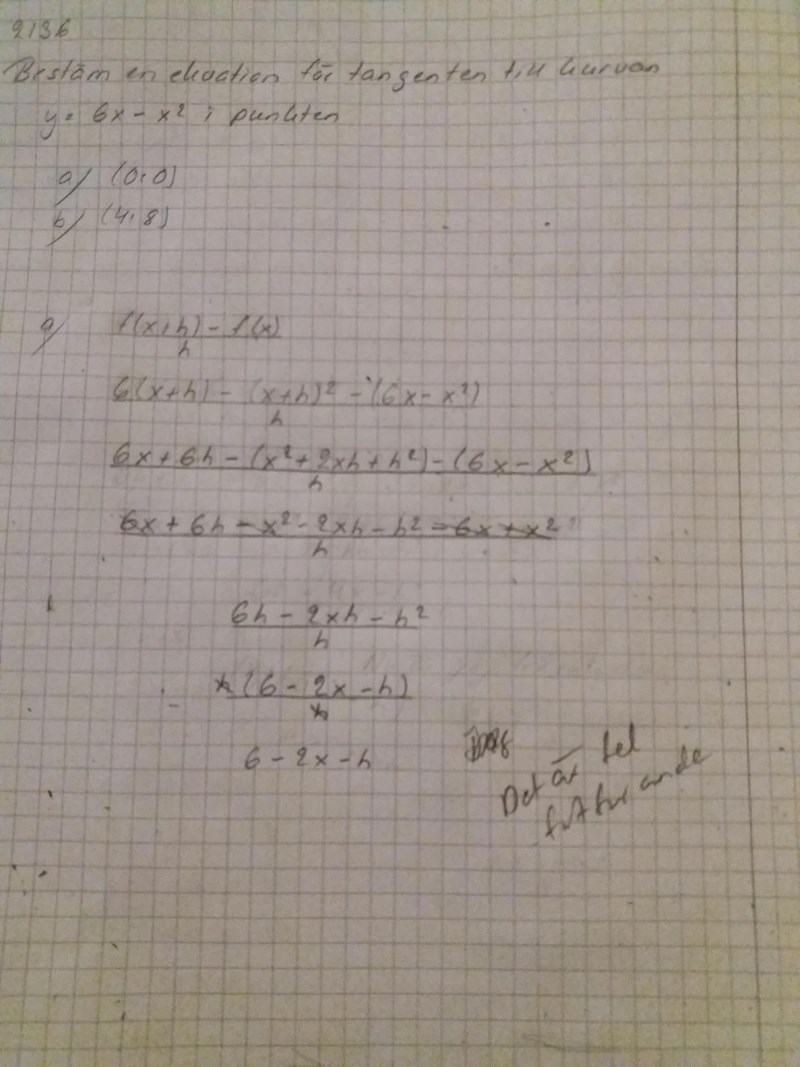 2136
Bestäm en ekvation för tangenten till kurvan
y = 6x - x² i punkten
a) (0,0)
b) (4,8)
a) f(x+h) - f(x)
h
6(x+h) - (x+h)² - (6x - x²)
h
6x + 6h - (x² + 2xh + h²) - (6x - x²)
h
6x + 6h - x² - 2xh - h² - 6x + x²
h
6h - 2xh - h²
h
h(6 - 2x - h)
h
6 - 2x - h
Det är fel
fortfarande